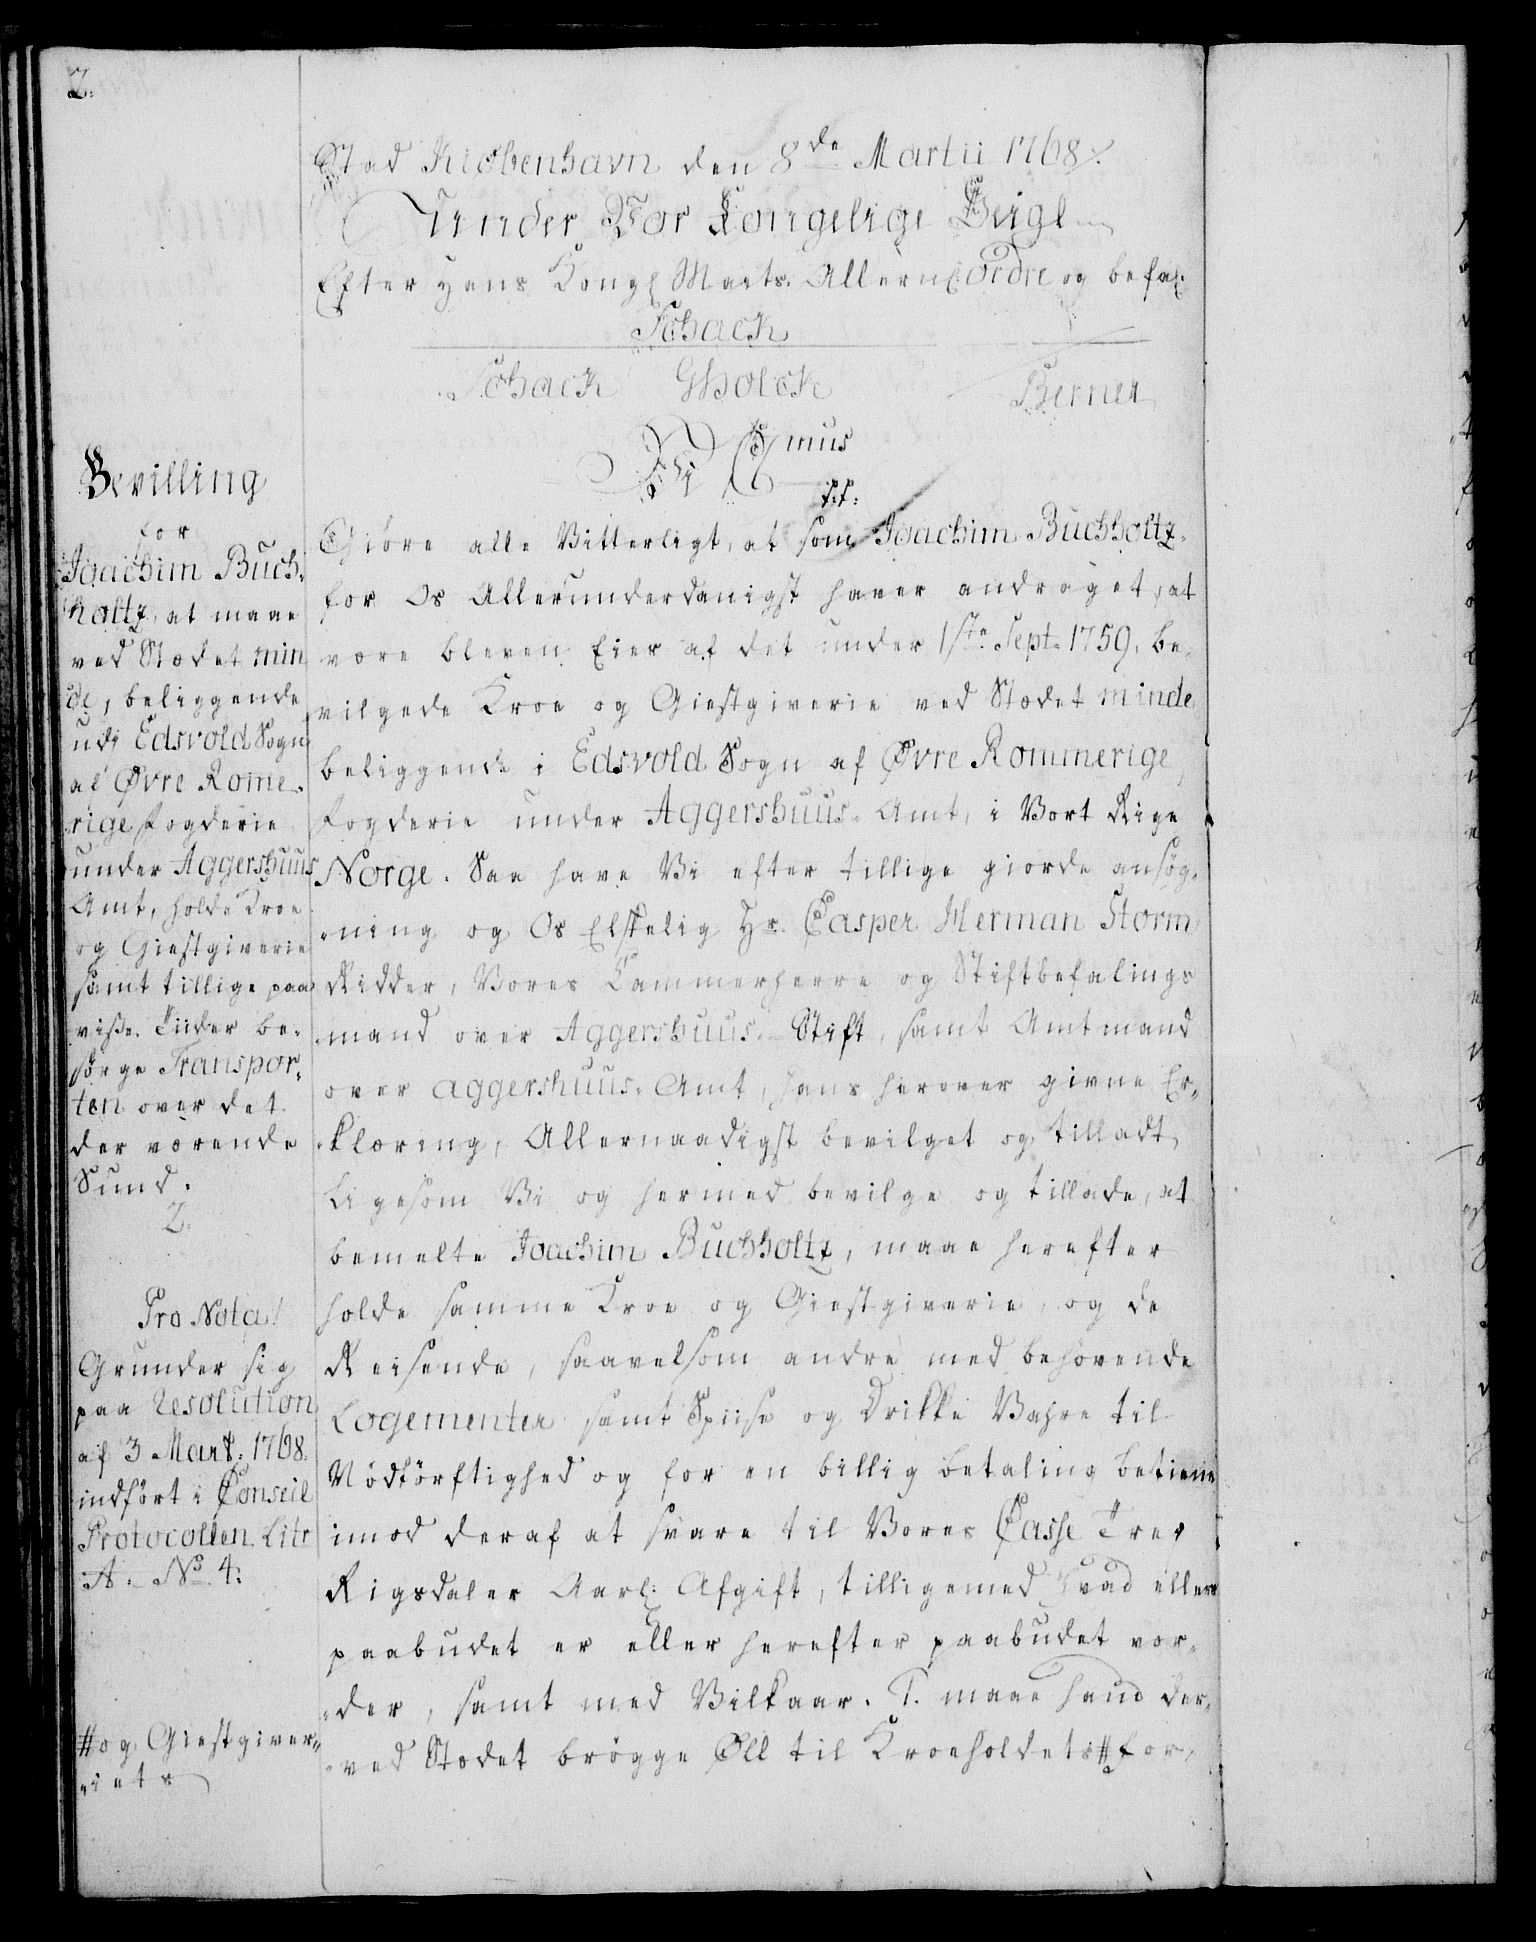 2.
Stad Kiøbenhavn den 8de Martii 1768 /.
Under Vor Kongelige Seigl
Efter Hans Kongl Maets. Allernl. Ordre og befal.
Schack
Schack GHolck Berner
Vi C 7mus
p. p.
Giøre alle Vitterligt, at som Joachim Buchholtz
for Os Allerunderdanigst haver andraget, at
være bleven Eier af det under 1ste Sept. 1759. be-
vilgede Kroe og Giestgiverie ved Stædet minde
beliggende i Edsvold Sogn af Øvre Rommerige
Fogderie under Aggershuus-Amt, i Vort Rige
Norge. Saa have Vi efter tillige giorde ansøg-
-ning og Os Elskelig Hr. Casper Herman Storm
Ridder, Vores Cammerherre og Stiftbefalings
-mand over Aggershuus-Stift, samt Amtmand
over Aggershuus-Amt, hans herover givne Er-
-klæring, Allernaadigst bevilget og tilladt,
Ligesom Vi og hermed bevilge og tillade, at
bemelte Joachim Buchholtz, maae herefter
holde samme Kroe og Giestgiverie, og de
Reisende, saavelsom andre med behøvende
Logementer samt Spiise og Drikke Vahre til
Nødtørftighed og for en billig betaling betiene
imod deraf at svare til Vores Casse Tre
Rigsdaler Aarl. Afgift, tilligemed hvad ellers
paabudet er eller herefter paabudet vor-
-der, samt med Vilkaar. 1. maae hand der-
-ved Stædet brøgge Øll til Kroeholdets # for-
Bevilling
for
Joachim Buch-
holtz, at maae
ved Stædet min
de, beliggende
udi Edsvold Sogn
af Øvre Rome-
rige Fogderie
under Aggershuus
Amt, holde Kroe
og Giestgiverie
samt tillige paa
visse Tiider be-
sørge Transpor-
ten over det
der værende
Sund.
2.
Pro Nota!
Grunder sig
paa Resolution
af 3 Mart: 1768.
indført i Conseil
Protocollen Litr
A. No 4.
# og Giestgiver-
-iets